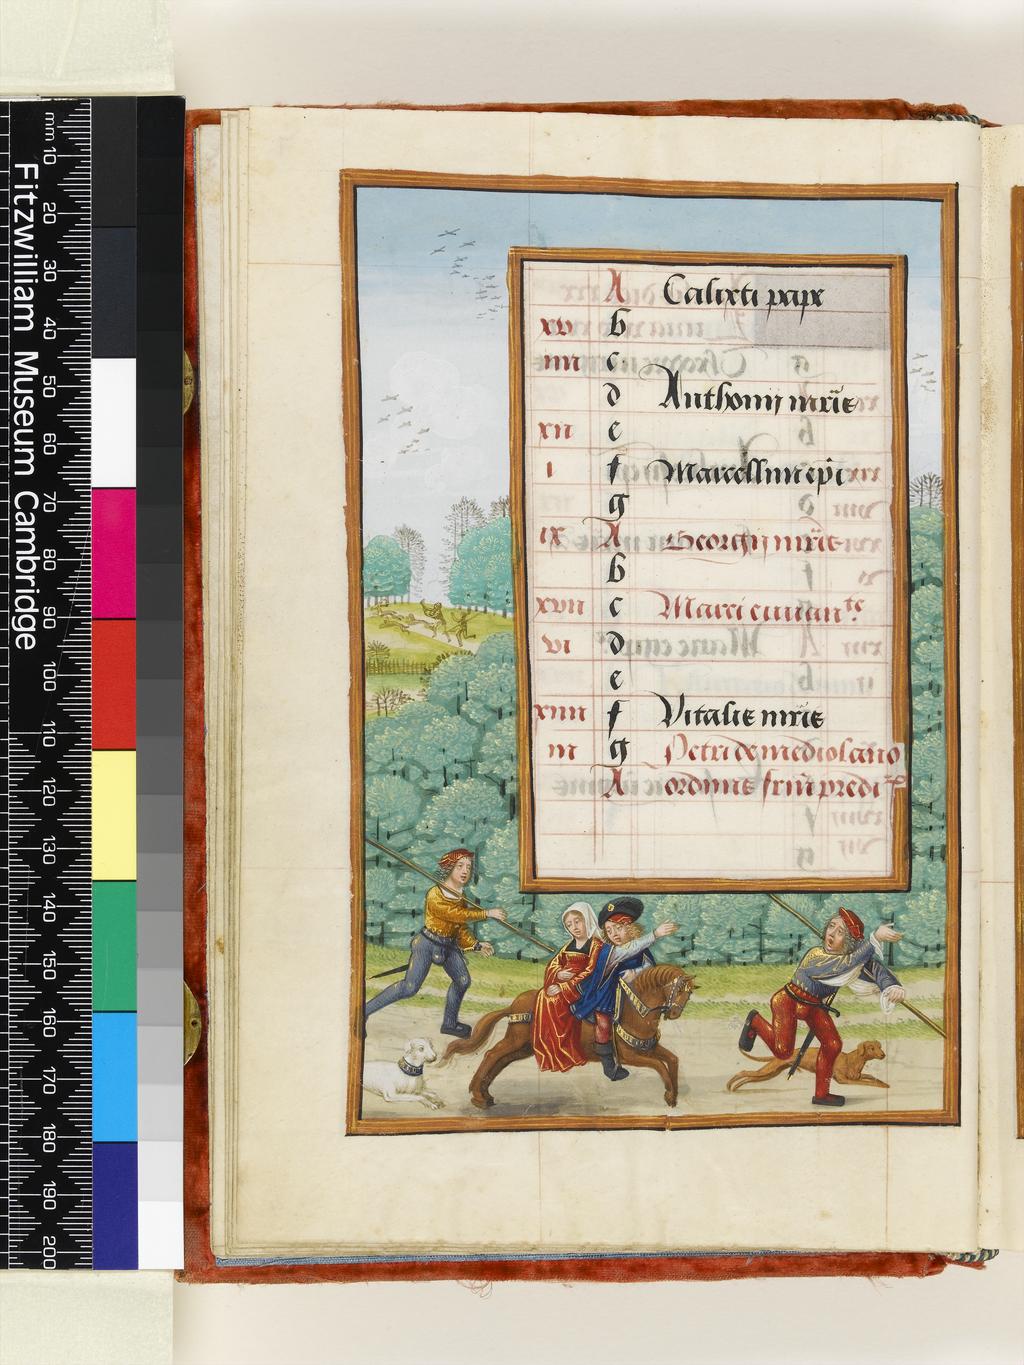 A Calixti pape
xv b
iiii c
d Anthonij mr̄is
xii e
i f Marcellini ep̄i
g
ix A Georgij mr̄is
b
xvii c Marci euuan^te.
vi d
e
xiiii f Vitalis mr̄is
iii g Petri de mediolano
A ordinis fr̄m predi
mm 10 20 30 40 50 60 70 80 90 100 110 120 130 140 150 160 170 180 190 200
Fitzwilliam Museum Cambridge